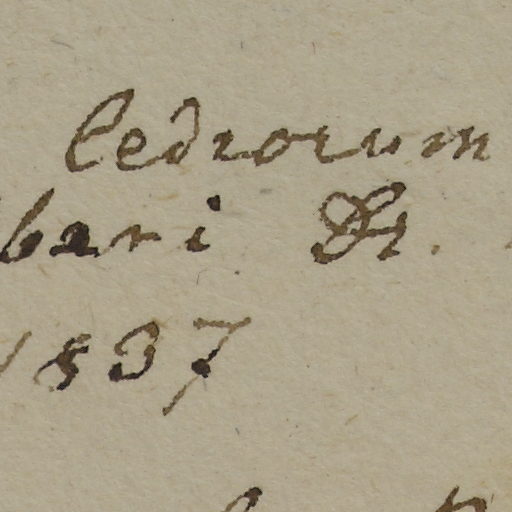 Cedrorum
bari Dr.
1837